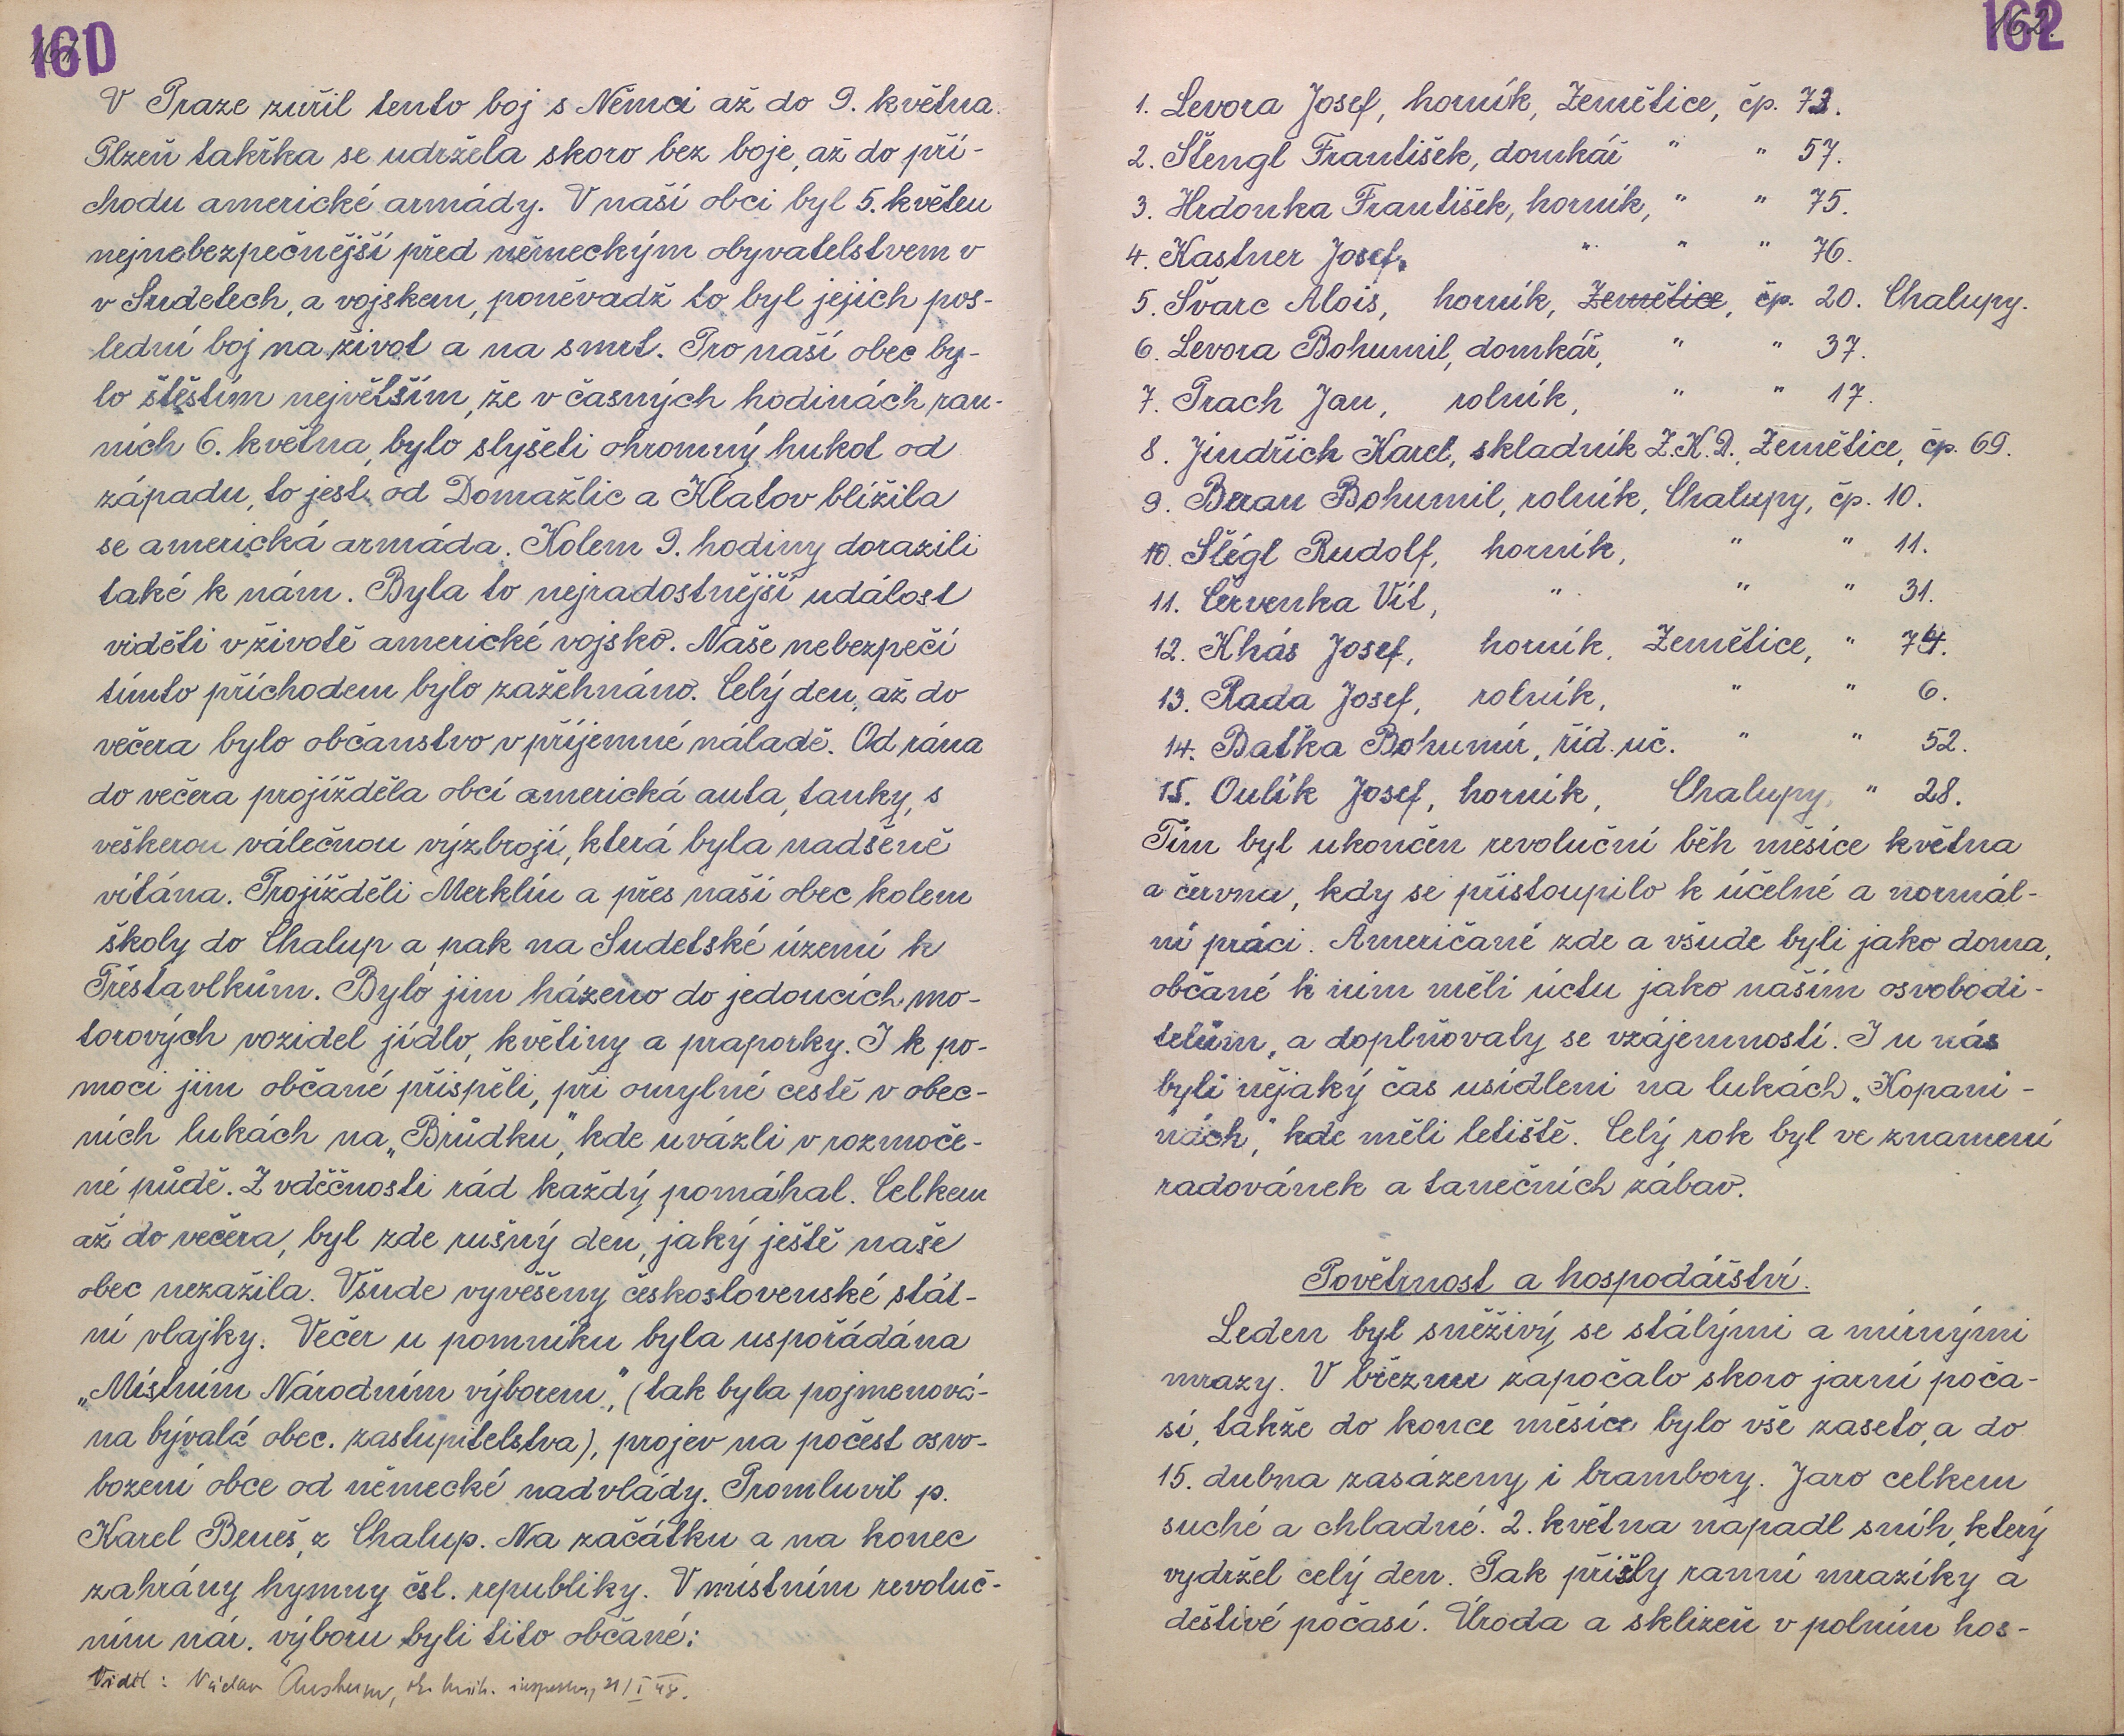 161.
V Praze zuřil tento boj s Němci až do 9. května.
Plzeň takřka se udržela skoro bez boje, až do pří-
chodu americké armády. V naší obci byl 5. květen
nejnebezpečnější před německým obyvatelstvem v
v Sudetech, a vojskem, poněvadž to byl jejich pos-
lední boj na život a na smrt. Pro naší obec by-
lo štěstím největším, že v časných hodinách ran-
ních 6. května, bylo slyšeti ohromný hukot od
západu, to jest od Domažlic a Klatov blížila
se americká armáda. Kolem 9. hodiny dorazili
také k nám. Byla to nejradostnější událost
viděti v životě americké vojsko. Naše nebezpečí
tímto příchodem bylo zažehnáno. Celý den, až do
večera bylo občanstvo v příjemné náladě. Od rána
do večera projížděla obcí americká auta, tanky, s
veškerou válečnou výzbrojí, která byla nadšeně
vítána. Projížděli Merklín a přes naší obec kolem
školy do Chalup a pak na Sudetské území k
Třestavlkům. Bylo jim házeno do jedoucích mo-
torových vozidel jídlo, květiny a praporky. I k po-
moci jim občané přispěli, při omylné cestě v obec-
ních lukách na „Brůdku“, kde uvázli v rozmoče-
né půdě. Z vděčnosti rád každý pomáhal. Celkem
až do večera, byl zde rušný den, jaký ještě naše
obec nezažila. Všude vyvěšeny československé stát-
ní vlajky. Večer u pomníku byla uspořádána
„Místním Národním výborem“, (tak byla pojmenová-
na bývalá obec. zastupitelstva), projev na počest osvo-
bození obce od německé nadvlády. Promluvil p.
Karel Beneš, z Chalup. Na začátku a na konec
zahrány hymny čsl. republiky. V místním revoluč-
ním nár. výboru byli tito občané:
Viděl: Václav
162.
1. Levora Josef, horník, Zemětice, čp. 73.
2. Štengl František, domkář " " 57.
3. Hrdonka František, horník, " " 75.
4. Kastner Josef, " " " 76.
5. Švarc Alois, horník, Zemětice, čp. 20. Chalupy.
6. Levora Bohumil, domkář, " " 37.
7. Prach Jan, rolník, " " 17.
8. Jindřich Karel, skladník Z.K.D., Zemětice, čp. 69.
9. Beran Bohumil, rolník, Chalupy, čp. 10.
10. Šlégl Rudolf, horník, " " 11.
11. Červenka Vít, " " " 31.
12. Khás Josef, horník, Zemětice, " 74.
13. Rada Josef, rolník, " " 6.
14. Baťka Bohumír, říd. uč. " " 52.
15. Oulík Josef, horník, Chalupy, " 28.
Tím byl ukončen revoluční běh měsíce května
a června, kdy se přistoupilo k účelné a normál-
ní práci. Američané zde a všude byli jako doma,
občané k nim měli úctu jako naším osvobodi-
telům, a doplňovaly se vzájemností. I u nás
byli nějaký čas usídleni na lukách „Kopani-
nách,“ kde měli letiště. Celý rok byl ve znamení
radovánek a tanečních zábav.
Povětrnost a hospodářství.
Leden byl sněživý se stálými a mírnými
mrazy. V březnu započalo skoro jarní poča-
sí, takže do konce měsíce bylo vše zaseto, a do
15. dubna zasázeny i brambory. Jaro celkem
suché a chladné. 2. května napadl sníh, který
vydržel celý den. Pak přišly ranní mrazíky a
deštivé počasí. Úroda a sklizeň v polním hos-